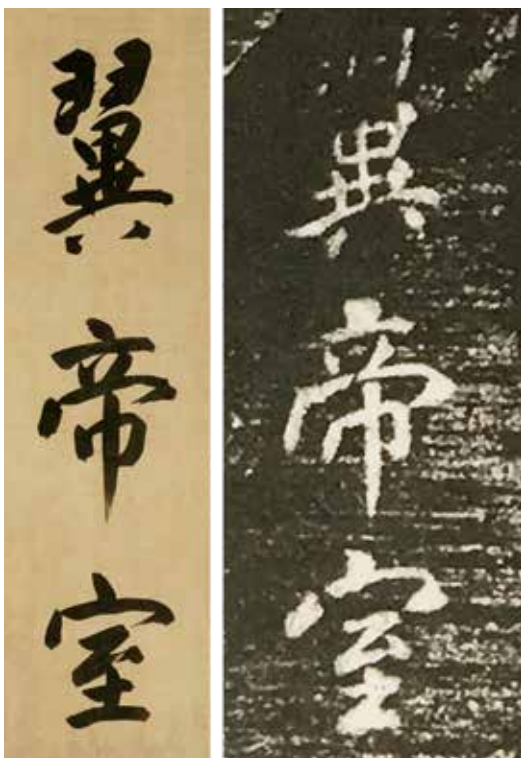 翼帝室
翼帝室